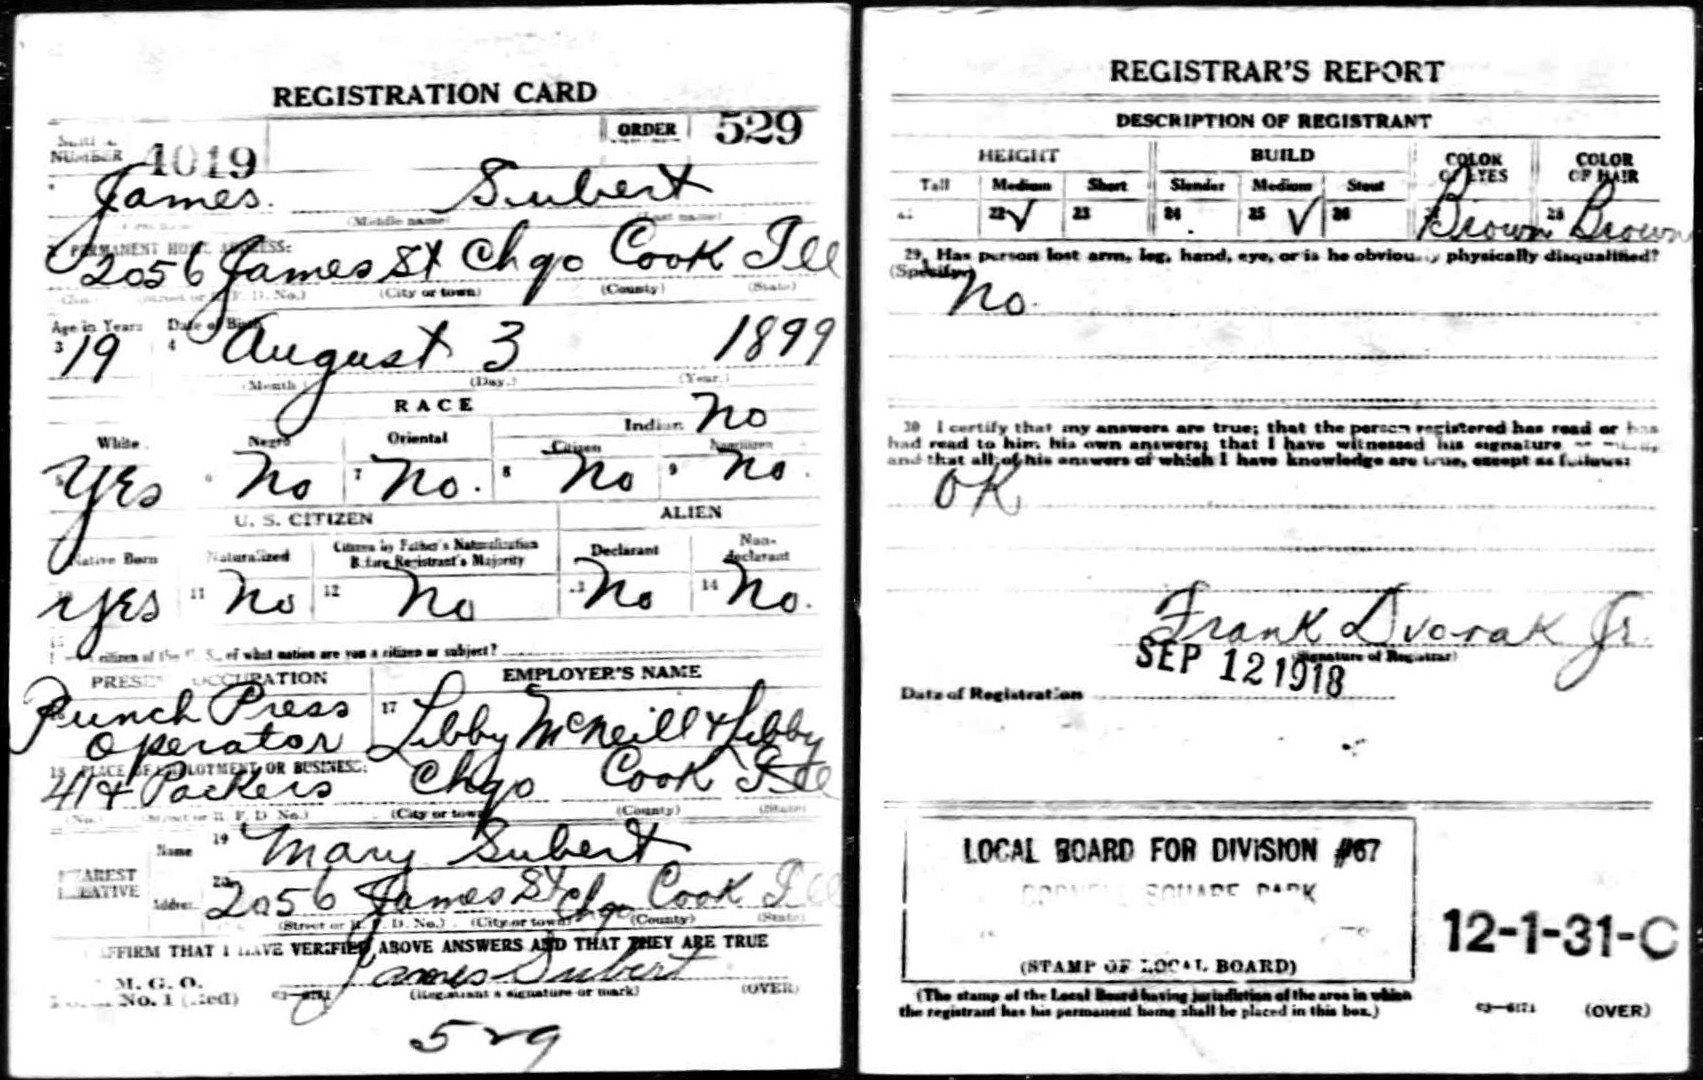 REGISTRATION CARD
SERIAL NUMBER 4019 ORDER 529
James Subert
(Middle name) (Last name)
PERMANENT HOME ADDRESS:
2056 James St Chgo Cook Ill
(No.) (Street or R. F. D. No.) (City or town) (County) (State)
Age in Years Date of Birth
3 19 4 August 3 1899
(Month.) (Day.) (Year.)
RACE
White Negro Oriental Indian No
Citizen Noncitizen
Yes 6 No 7 No. 8 No 9 No.
U. S. CITIZEN ALIEN
Native Born Naturalized Citizen by Father's Naturalization Before Registrant's Majority Declarant Non-declarant
10 Yes 11 No 12 No 13 No 14 No.
15 citizen of the U. S., of what nation are you a citizen or subject?
PRESENT OCCUPATION EMPLOYER'S NAME
Punch Press Operator 17 Libby McNeill & Libby
18 PLACE OF EMPLOYMENT OR BUSINESS:
414 Packers Chgo Cook Ill
(No.) (Street or R. F. D. No.) (City or town) (County) (State)
NEAREST RELATIVE
Name 19 Mary Subert
Address 20 2056 James St Chgo Cook Ill
(Street or R. F. D. No.) (City or town) (County) (State)
AFFIRM THAT I HAVE VERIFIED ABOVE ANSWERS AND THAT THEY ARE TRUE
P. M. G. O.
Form No. 1 (Red) 03—6171 James Subert
(Registrant's signature or mark) (OVER)
529
REGISTRAR'S REPORT
DESCRIPTION OF REGISTRANT
HEIGHT BUILD COLOR OF EYES COLOR OF HAIR
Tall Medium Short Slender Medium Stout
21 22 ✓ 23 24 25 ✓ 26 Brown 28 Brown
29 Has person lost arm, leg, hand, eye, or is he obviously physically disqualified?
(Specify)
No.
30 I certify that my answers are true; that the person registered has read or has
had read to him his own answers; that I have witnessed his signature or mark,
and that all of his answers of which I have knowledge are true, except as follows:
OK
Frank Dvorak Jr.
(Signature of Registrar)
Date of Registration SEP 12 1918
LOCAL BOARD FOR DIVISION #67
CORNELL SQUARE PARK
(STAMP OF LOCAL BOARD)
12-1-31-C
(The stamp of the Local Board having jurisdiction of the area in which
the registrant has his permanent home shall be placed in this box.)
03—6171 (OVER)